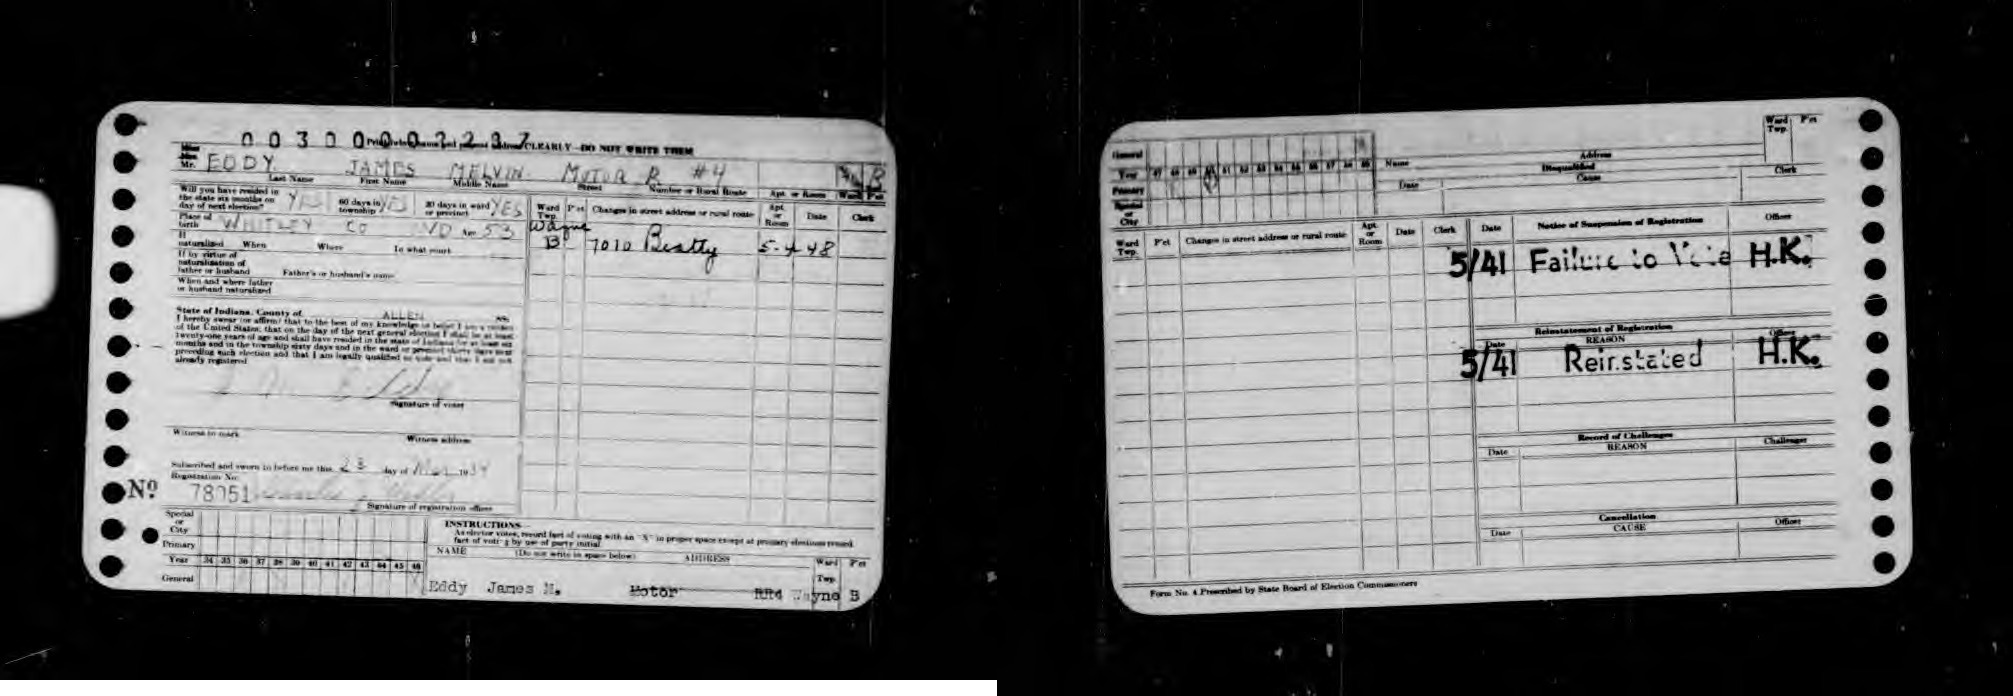 0 0 3 0 0 0 0 2 2 9 7
CLEARLY—DO NOT WRITE THEM
Mr. EDDY JAMES MELVIN MOTOR R #4 B
Last Name First Name Middle Name Street Number or Rural Route Apt. or Room Ward P'ct
Will you have resided in the state six months on day of next election? YES 60 days in township YES 30 days in ward or precinct YES
Place of birth WHITLEY CO IND Age 53
If naturalized When Where In what court
If by virtue of naturalization of father or husband Father's or husband's name
When and where father or husband naturalized
Ward Twp. P'ct Changes in street address or rural route Apt. or Room Date Clerk
Wayne B 7010 Beatty 5-4-48
State of Indiana, County of ALLEN SS:
I hereby swear (or affirm) that to the best of my knowledge or belief I am a citizen
of the United States; that on the day of the next general election I shall be at least
twenty-one years of age and shall have resided in the state of Indiana for at least six
months and in the township sixty days and in the ward or precinct thirty days next
preceding such election and that I am legally qualified to vote and that I am not
already registered
Signature of voter
Witness to mark Witness address
Subscribed and sworn to before me this 23 day of 1934
Registration No.
No 78051
Signature of registration officer
Special or City
Primary
Year 34 35 36 37 38 39 40 41 42 43 44 45 46
General
INSTRUCTIONS
As elector votes, record fact of voting with an "X" in proper space except at primary elections record
fact of voting by use of party initial
NAME (Do not write in space below) ADDRESS Ward Twp. P'ct
Eddy James M. Motor RR4 Wayne B
General
Year 47 48 49 50 51 52 53 54 55 56 57 58 59
Primary
Special or City
Name Address Ward Twp. P'ct
Disqualified
Date Cause Clerk
Ward Twp. P'ct Changes in street address or rural route Apt. or Room Date Clerk
Date Notice of Suspension of Registration Officer
5/41 Failure to Vote H.K.
Reinstatement of Registration
Date REASON Officer
5/41 Reinstated H.K.
Record of Challenges
Date REASON Challenger
Cancellation
Date CAUSE Officer
Form No. 4 Prescribed by State Board of Election Commissioners